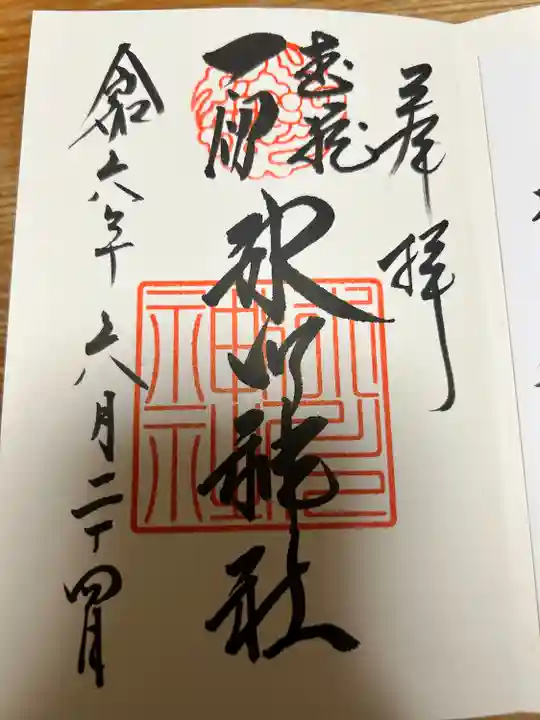 奉拝
武蔵
一宮
氷川神社
令和六年 六月二十四日
氷川神社